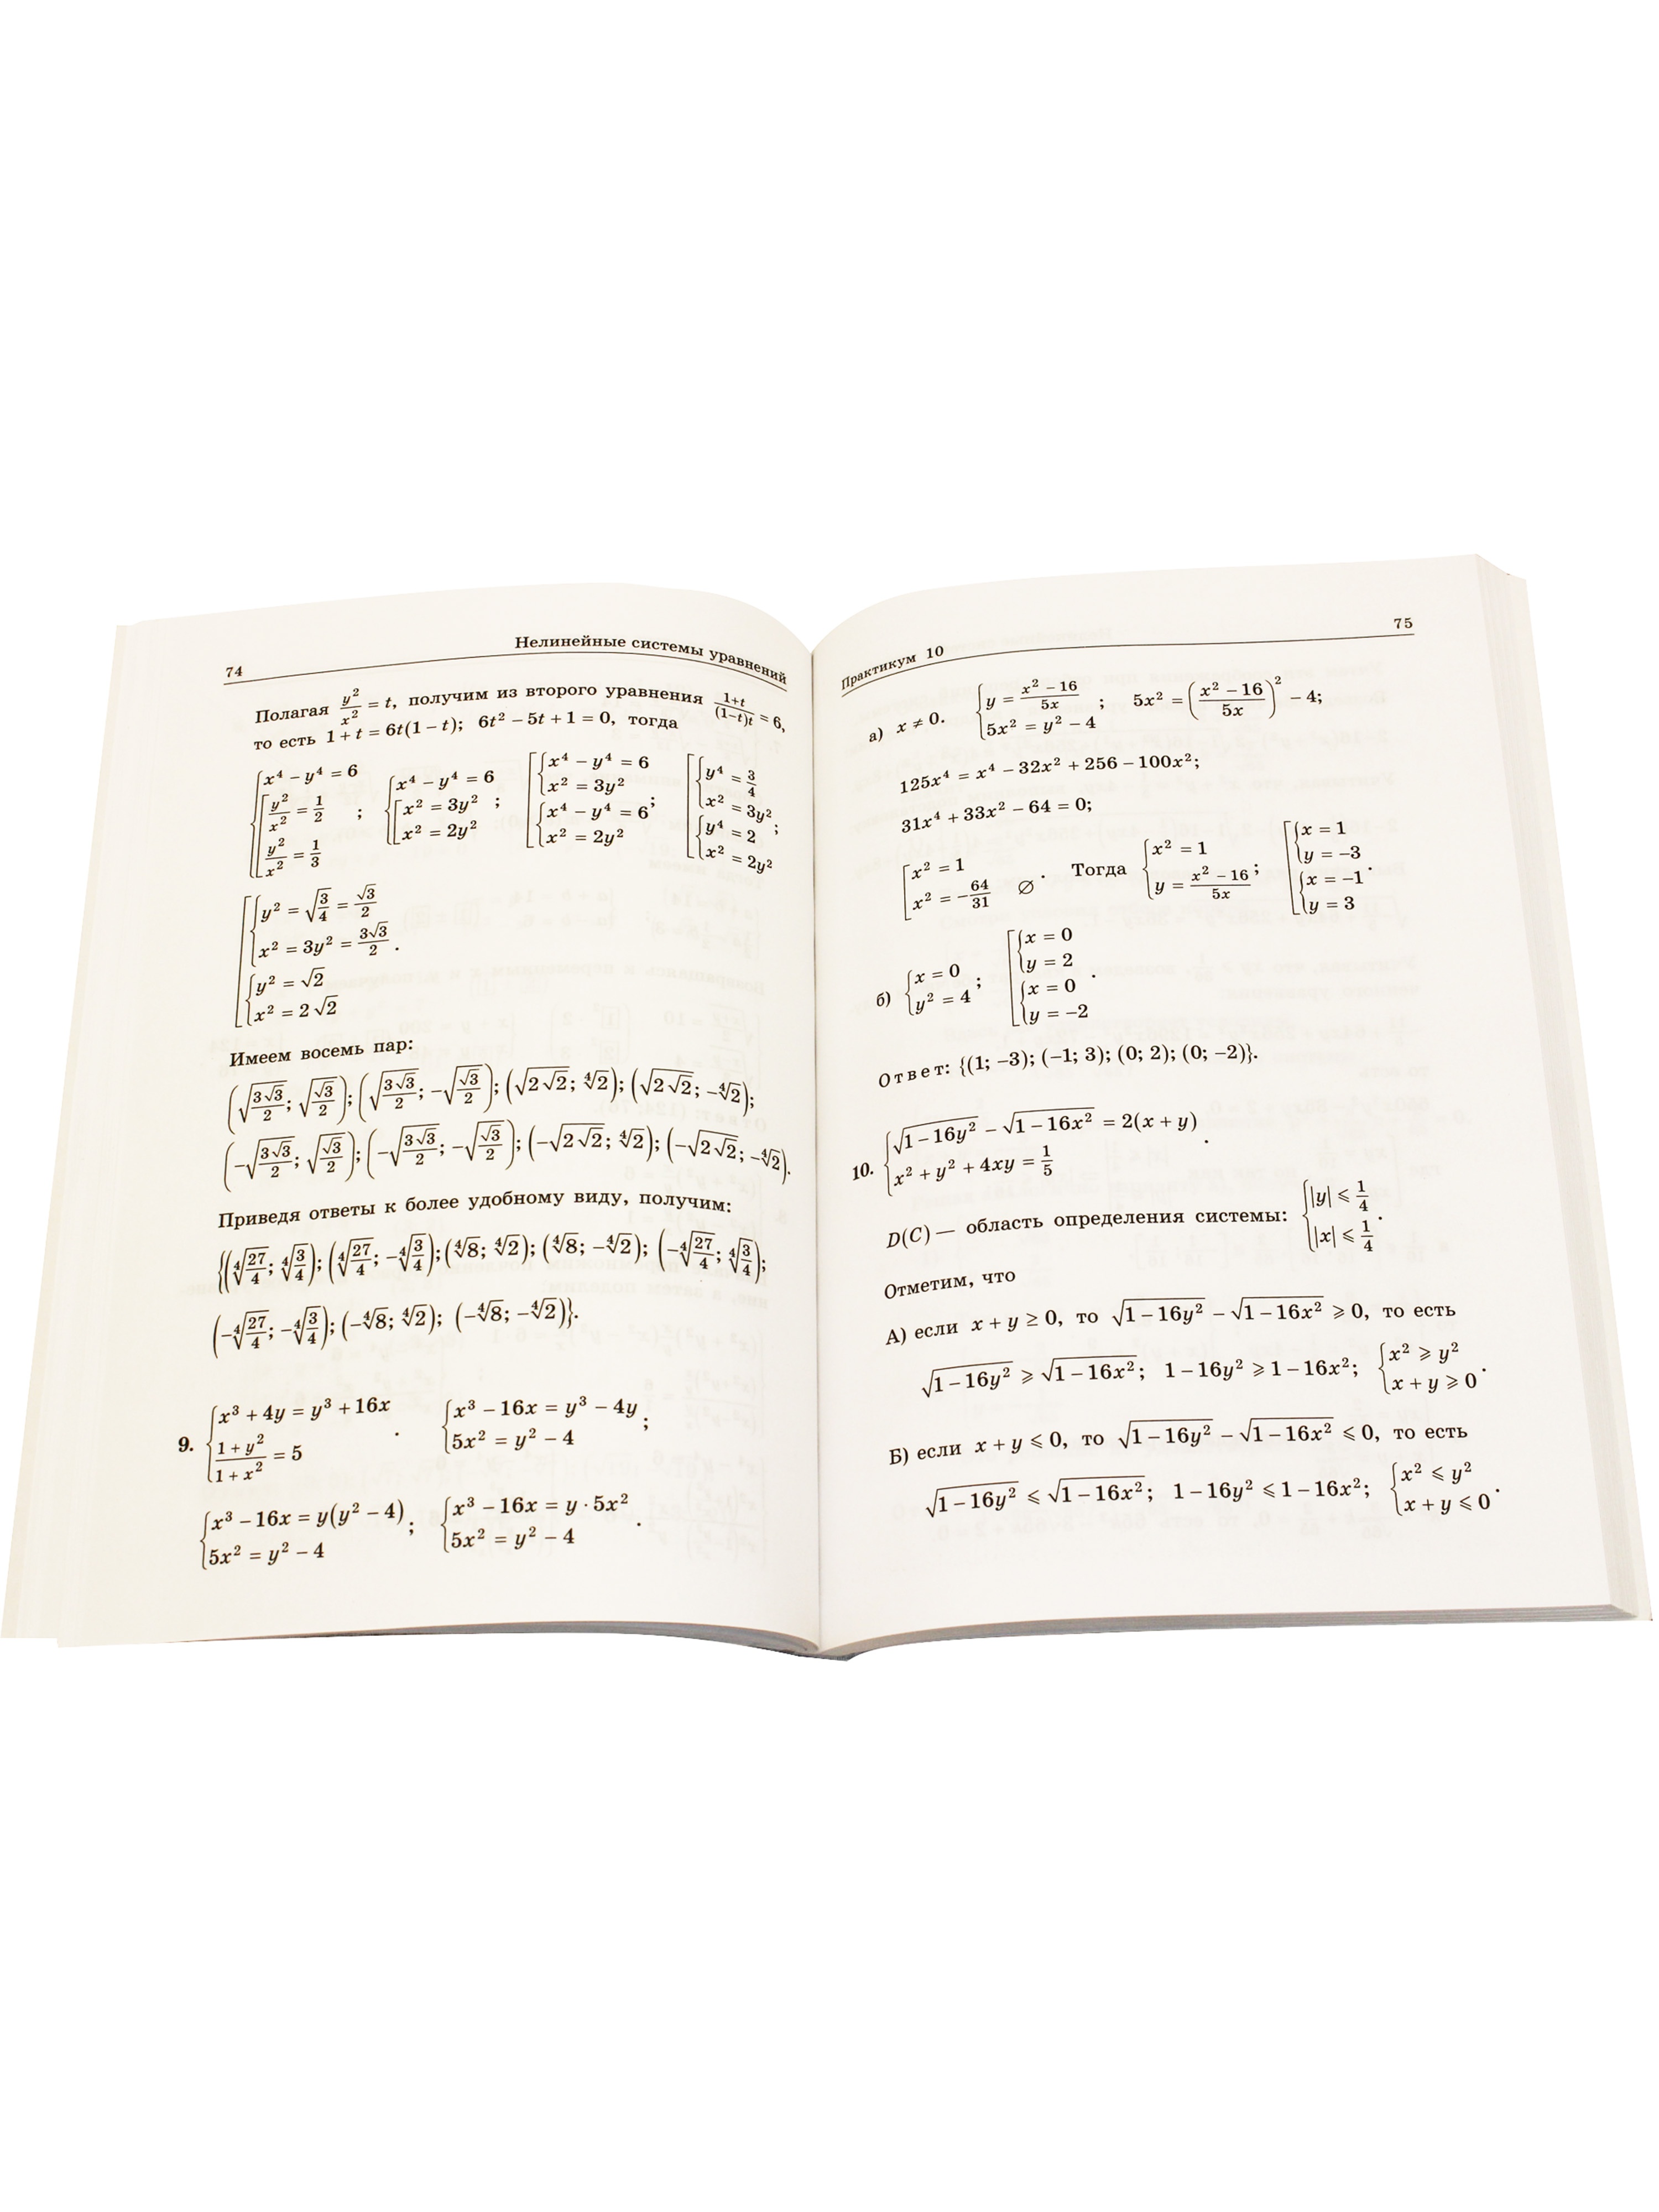 74 Нелинейные системы уравнений
Полагая y²/x² = t, получим из второго уравнения (1+t)/((1−t)t) = 6,
то есть 1 + t = 6t(1 − t); 6t² − 5t + 1 = 0, тогда
{x⁴ − y⁴ = 6; [y²/x² = 1/2; y²/x² = 1/3 ; {x⁴ − y⁴ = 6; [x² = 3y²; x² = 2y² ; [{x⁴ − y⁴ = 6; x² = 3y²; {x⁴ − y⁴ = 6; x² = 2y² ; [{y⁴ = 3/4; x² = 3y²; {y⁴ = 2; x² = 2y² ;
[{y² = √(3/4) = √3/2
x² = 3y² = 3√3/2 .
{y² = √2
x² = 2√2
Имеем восемь пар:
(√(3√3/2); √(√3/2)); (√(3√3/2); −√(√3/2)); (√(2√2); ⁴√2); (√(2√2); −⁴√2);
(−√(3√3/2); √(√3/2)); (−√(3√3/2); −√(√3/2)); (−√(2√2); ⁴√2); (−√(2√2); −⁴√2).
Приведя ответы к более удобному виду, получим:
{(⁴√(27/4); ⁴√(3/4)); (⁴√(27/4); −⁴√(3/4)); (⁴√8; ⁴√2); (⁴√8; −⁴√2); (−⁴√(27/4); ⁴√(3/4));
(−⁴√(27/4); −⁴√(3/4)); (−⁴√8; ⁴√2); (−⁴√8; −⁴√2)}.
9. {x³ + 4y = y³ + 16x; (1 + y²)/(1 + x²) = 5 . {x³ − 16x = y³ − 4y; 5x² = y² − 4 ;
{x³ − 16x = y(y² − 4); 5x² = y² − 4 ; {x³ − 16x = y · 5x²; 5x² = y² − 4 .
Практикум 10 75
а) x ≠ 0. {y = (x² − 16)/5x; 5x² = y² − 4 ; 5x² = ((x² − 16)/5x)² − 4;
125x⁴ = x⁴ − 32x² + 256 − 100x²;
31x⁴ + 33x² − 64 = 0;
[x² = 1; x² = −64/31 ∅ . Тогда {x² = 1; y = (x² − 16)/5x ; [{x = 1; y = −3; {x = −1; y = 3 .
б) {x = 0; y² = 4 ; [{x = 0; y = 2; {x = 0; y = −2 .
Ответ: {(1; −3); (−1; 3); (0; 2); (0; −2)}.
10. {√(1 − 16y²) − √(1 − 16x²) = 2(x + y)
x² + y² + 4xy = 1/5 .
D(C) — область определения системы: {|y| ⩽ 1/4; |x| ⩽ 1/4 .
Отметим, что
А) если x + y ≥ 0, то √(1 − 16y²) − √(1 − 16x²) ⩾ 0, то есть
√(1 − 16y²) ⩾ √(1 − 16x²); 1 − 16y² ⩾ 1 − 16x²; {x² ⩾ y²; x + y ⩾ 0 .
Б) если x + y ⩽ 0, то √(1 − 16y²) − √(1 − 16x²) ⩽ 0, то есть
√(1 − 16y²) ⩽ √(1 − 16x²); 1 − 16y² ⩽ 1 − 16x²; {x² ⩽ y²; x + y ⩽ 0 .